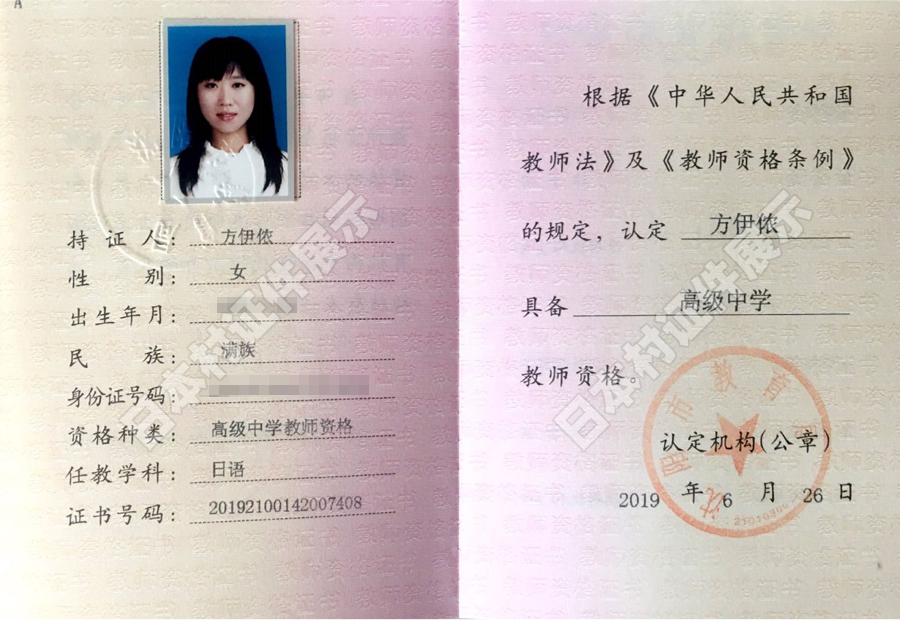 A
持证人： 方伊侬
性别： 女
出生年月：
民族： 满族
身份证号码：
资格种类： 高级中学教师资格
任教学科： 日语
证书号码： 20192100142007408
根据《中华人民共和国
教师法》及《教师资格条例》
的规定，认定 方伊侬
具备 高级中学
教师资格。
认定机构(公章)
2019 年 6 月 26 日
沈阳市教育局
日本村证件展示
日本村证件展示